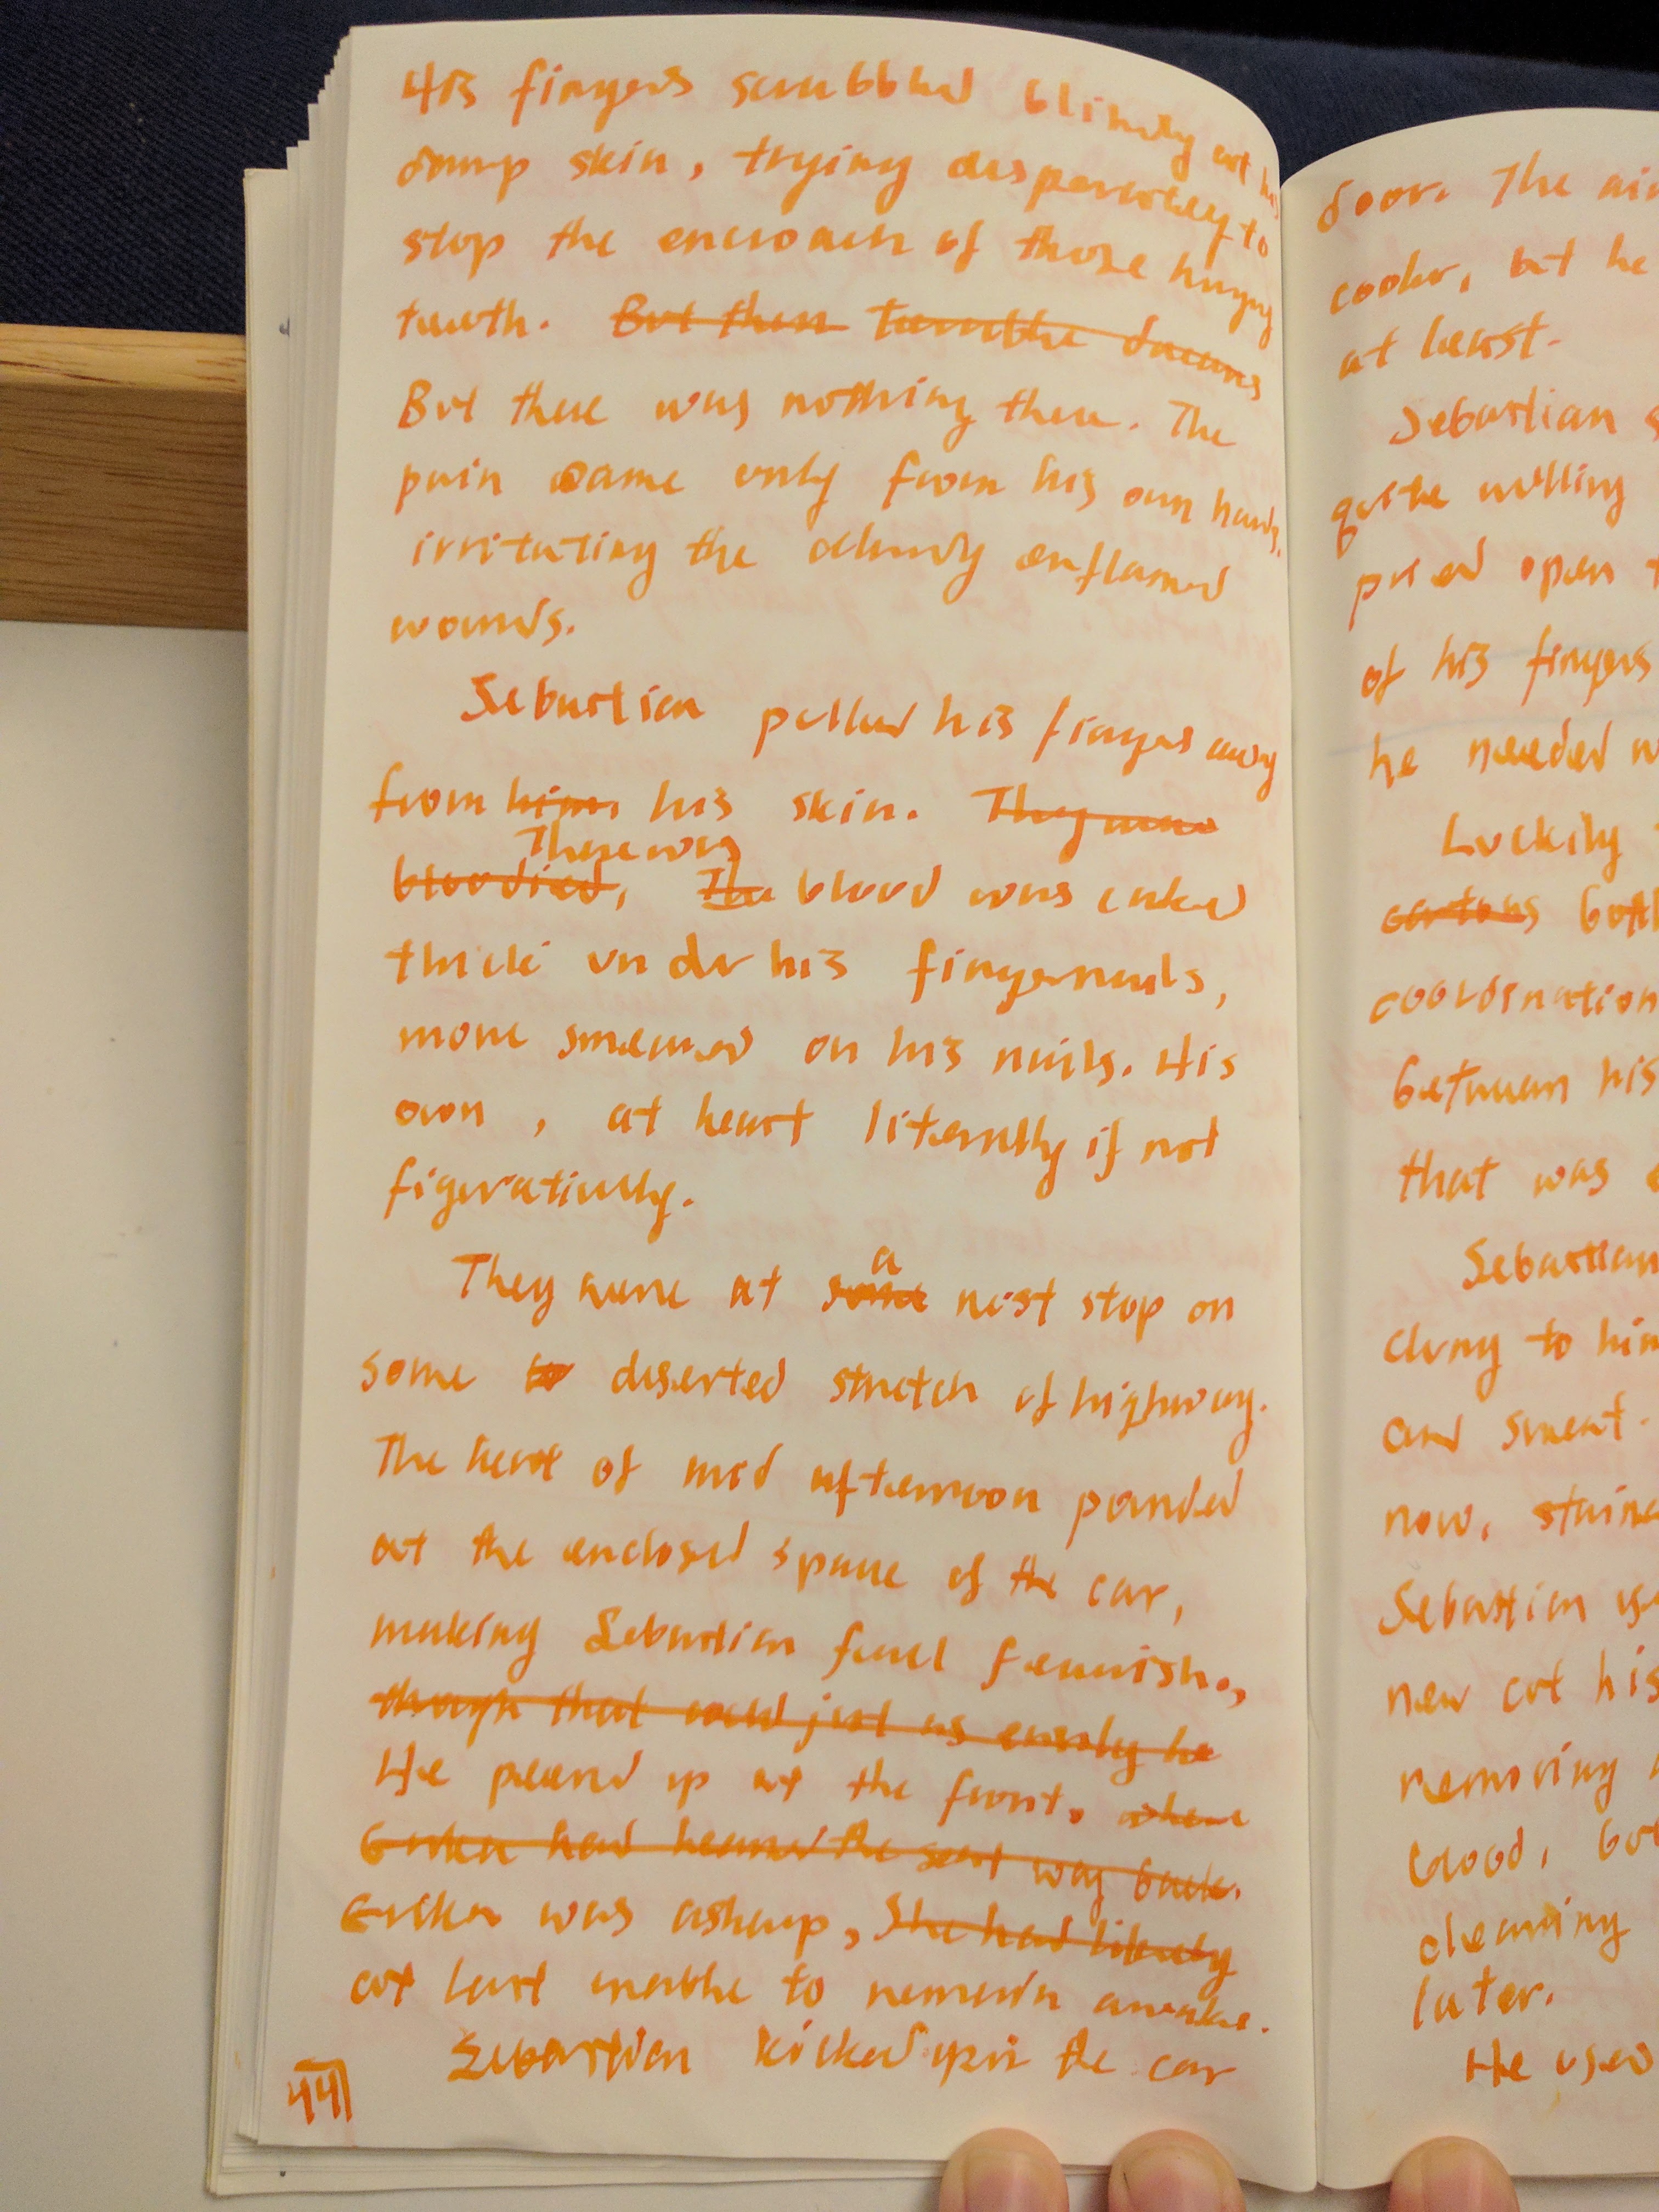 His fingers scrabbled blindly at his
damp skin, trying desperately to
stop the encroach of those hungry
teeth. But then terrible dreams
But there was nothing there. The
pain came only from his own hands,
irritating the already enflamed
wounds.
Sebastian pulled his fingers away
from him his skin. They were
There was
bloodied, The blood was caked
thick under his fingernails,
more smeared on his nails. His
own, at heart literally if not
figuratively.
a
They were at some rest stop on
some deserted stretch of highway.
The heat of mid afternoon pounded
at the enclosed space of the car,
making Sebastian feel feverish.,
though that could just as easily be
He peered up at the front. where
Erika had leaned the seat way back.
Erika was asleep, She had likely
at last unable to remain awake.
Sebastian kicked open the car
44
door. The air
cooler, but he
at least.
Sebastian
quite willing
pried open
of his fingers
he needed
Luckily
cartons
coordination
between his
that was
Sebastian
clung to him
and sweat.
now, 
Sebastian
new cut his
removing
blood, but
cleaning
later.
He used